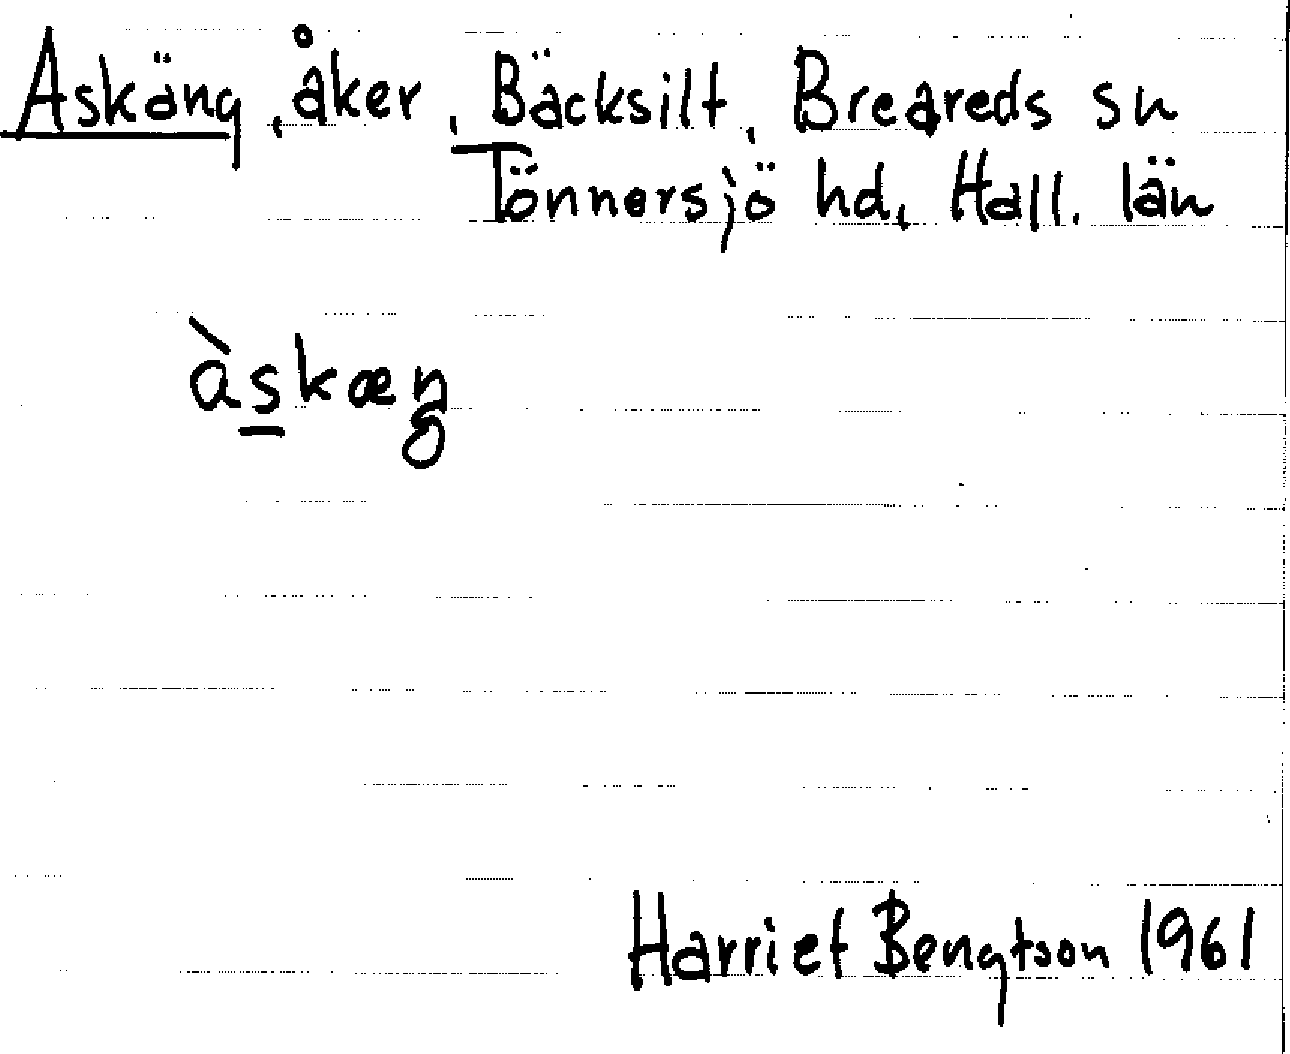 Askäng, åker, Bäcksilt, Breareds sn
Tönnersjö hd, Hall. län
àskæŋ
Harriet Bengtson 1961